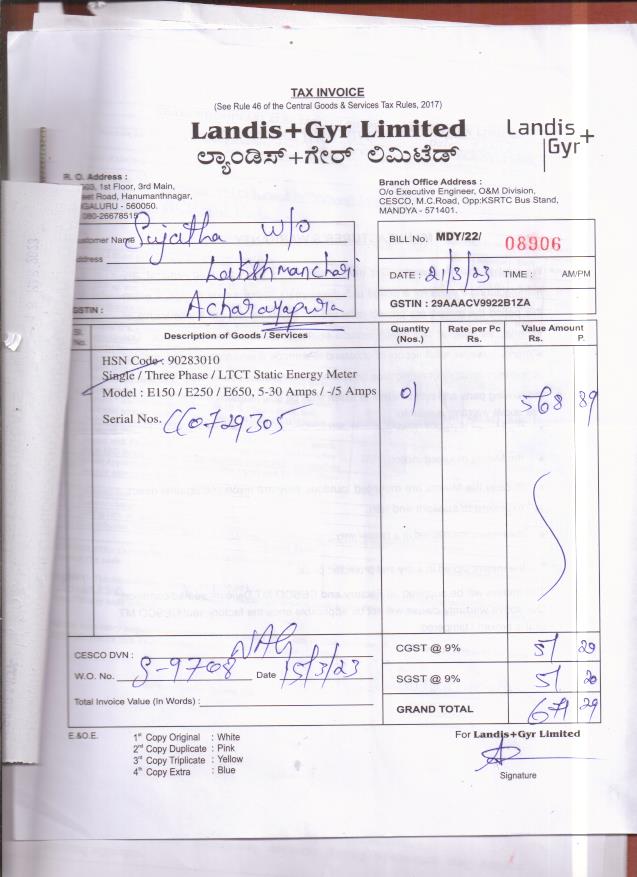 TAX INVOICE
(See Rule 46 of the Central Goods & Services Tax Rules, 2017)
Landis+Gyr Limited
Landis+
Gyr
ಲ್ಯಾಂಡಿಸ್+ಗೇರ್ ಲಿಮಿಟೆಡ್
R. O. Address :
1st Floor, 3rd Main,
Road, Hanumanthnagar,
- 560050.
080-26678515
Branch Office Address :
O/o Executive Engineer, O&M Division,
CESCO, M.C.Road, Opp:KSRTC Bus Stand,
MANDYA - 571401.
Customer Name Sujatha W/o
Address Lakshmanchari
Acharayapura
GSTIN :
BILL No. MDY/22/ 08906
DATE : 21/3/23 TIME : AM/PM
GSTIN : 29AAACV9922B1ZA
Sl. No. Description of Goods / Services Quantity (Nos.) Rate per Pc Rs. Value Amount Rs. P.
HSN Code : 90283010
Single / Three Phase / LTCT Static Energy Meter
Model : E150 / E250 / E650, 5-30 Amps / -/5 Amps 01 568 89
Serial Nos. CC0729305
CESCO DVN : NAG
W.O. No. S-9708 Date 15/3/23
Total Invoice Value (in Words) :
CGST @ 9% 51 20
SGST @ 9% 51 20
GRAND TOTAL 671 29
E.&O.E.
1st Copy Original : White
2nd Copy Duplicate : Pink
3rd Copy Triplicate : Yellow
4th Copy Extra : Blue
For Landis+Gyr Limited
Signature